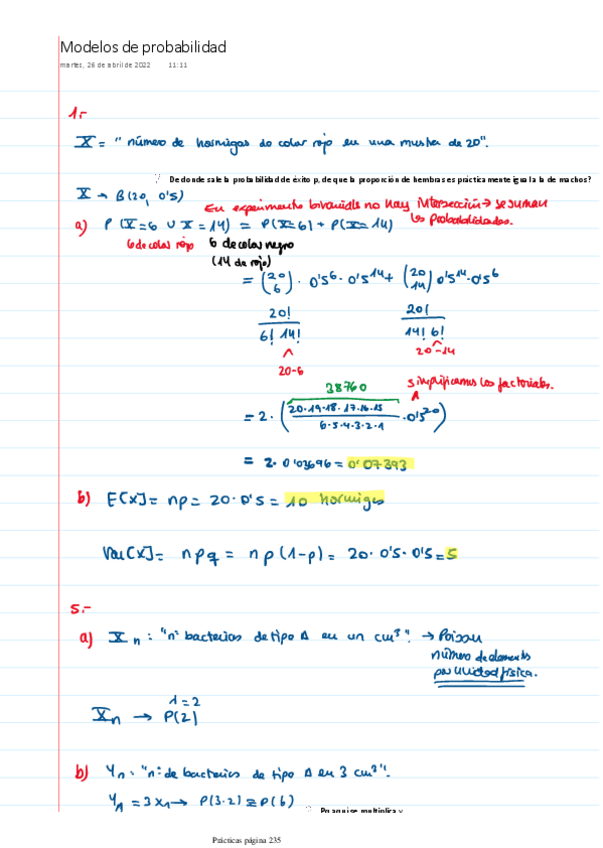 Modelos de probabilidad
martes, 26 de abril de 2022 11:11
1.-
X = "número de hormigas de color rojo en una muestra de 20".
De donde sale la probabilidad de éxito p, de que la proporción de hembras es prácticamente igual a la de machos?
X → B(20, 0'5)
En experimento binomiale no hay intersección → se suman los probabilidades.
a) P(X=6 ∪ X=14) = P(X=6) + P(X=14)
6 de color rojo 6 de color negro
(14 de rojo)
= (20 6) · 0'5^6 · 0'5^14 + (20 14) 0'5^14 · 0'5^6
20! / 6! 14! 20! / 14! 6!
20-6 20-14
38760 simplificamos los factoriales.
= 2 · (20·19·18·17·16·15 / 6·5·4·3·2·1 · 0'5^20)
= 2 · 0'03696 = 0'07393
b) E[X] = np = 20 · 0'5 = 10 hormigas
Var[X] = npq = np(1-p) = 20 · 0'5 · 0'5 = 5
5.-
a) X_n : "nº bacterias de tipo A en un cm³". → Poisson
número de elementos
por unidad física.
λ = 2
X_n → P(2)
b) Y_n : "nº de bacterias de tipo A en 3 cm³".
Y_1 = 3X_1 → P(3·2) ≡ P(6)
Prácticas página 235